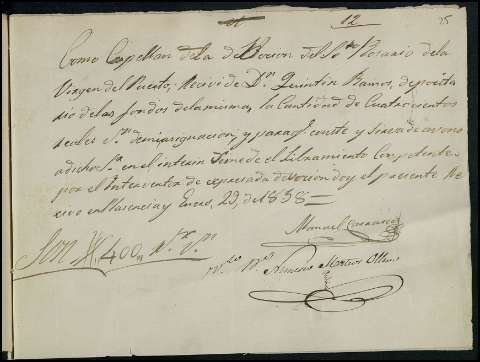 12
25
Como Capellan de la de Vocion del Sto. Rosario de la
Virgen del Puerto, Recivi de Dn. Quintin Ramos, deposita
rio de los fondos de la misma, la Cantidad de Cuatrocientos
reales vn. de mi asignacion, y para qe. conste y sirva de avono
a dicho Sr. en el interin se me de el Libramiento Competente
por el Interventor de expresada devocion doy el presente Re
civo en Plasencia y Enero, 29, de 1838
Son 400 Rs. Vn.
Manuel Carrasco